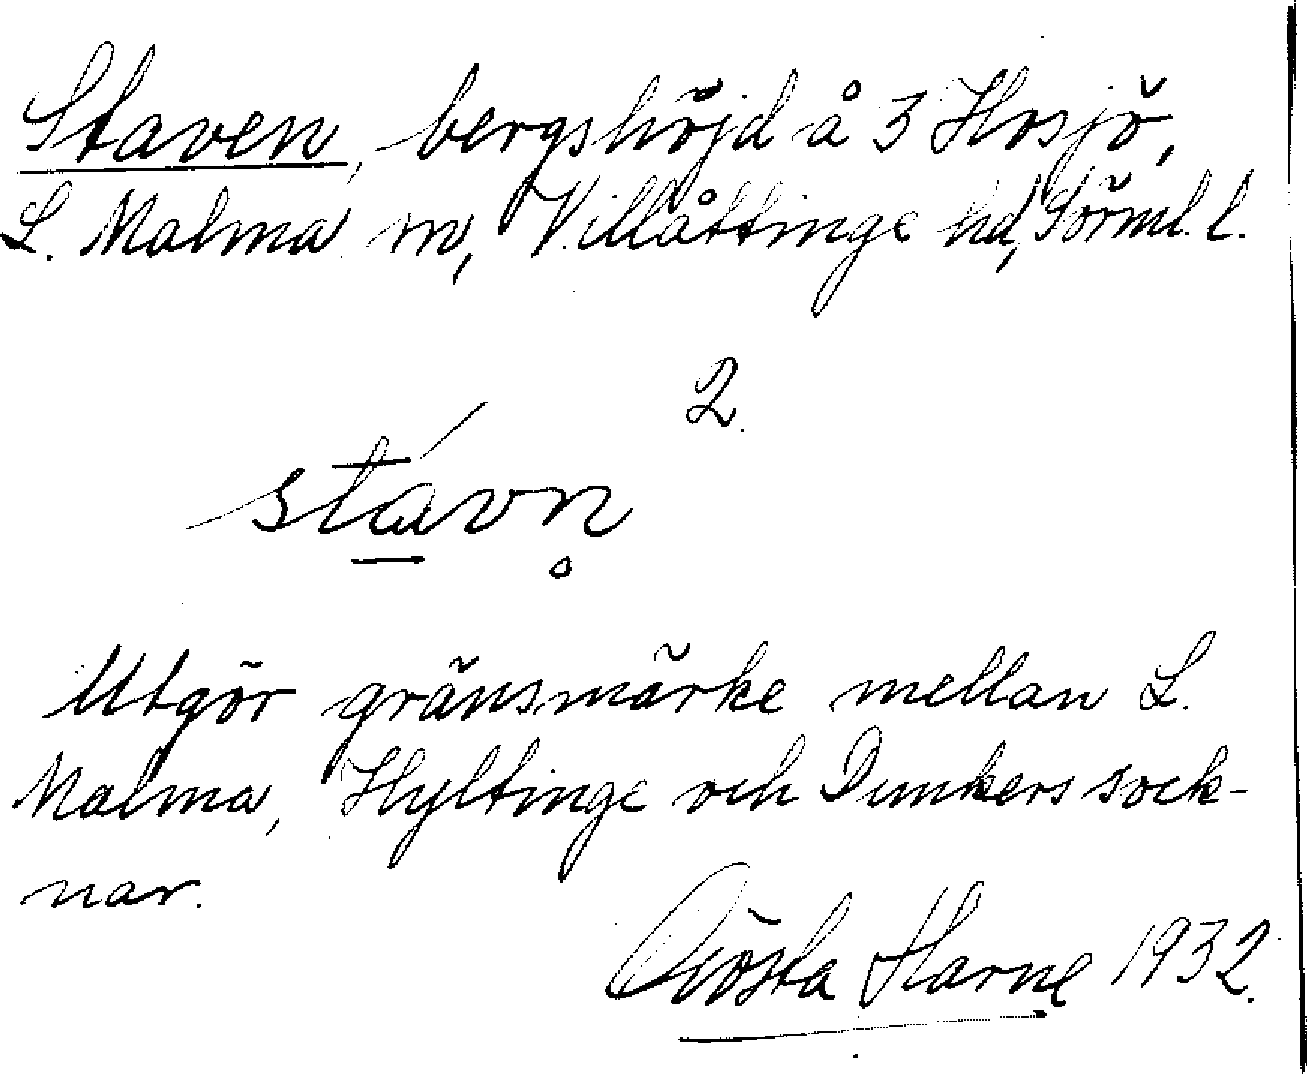 Staven, bergshöjd å 3 Hosjö,
L. Malma sn, Villåttinge hd, Sörml. l.
2.
stávn̥
Utgör gränsmärke mellan L.
Malma, Hyltinge och Dunkers sock-
nar.
Gösta Harne 1932.